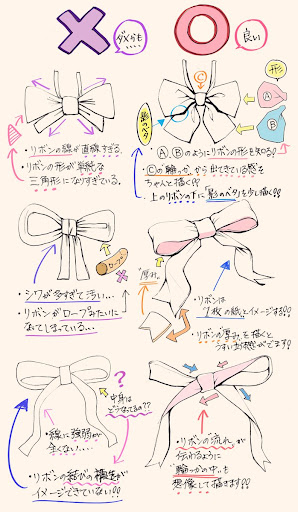 ダメかも....
良い
形
A
B
C
影のベタ
・リボンの線が直線すぎる。
・リボンの形が単純な
三角形になりすぎている。
・A,Bのようにリボンの形を知る!!
・Cの輪っかから出てきている感を
ちゃんと描く!!
・上のリボンの下に「影のベタ」を少し描く!!
ロープ
・シワが多すぎて汚い...
・リボンがロープみたいに
なってしまっている...
「厚み」
・リボンは
1枚の紙とイメージする!!
・リボンの「厚み」を描くと
中身は
どうなってるの??
・線に強弱が
全くない....
・リボンの結びの構造が
イメージできていない!!
・リボンの流れが
伝わるように
輪っかの中を
想像して描きます!!